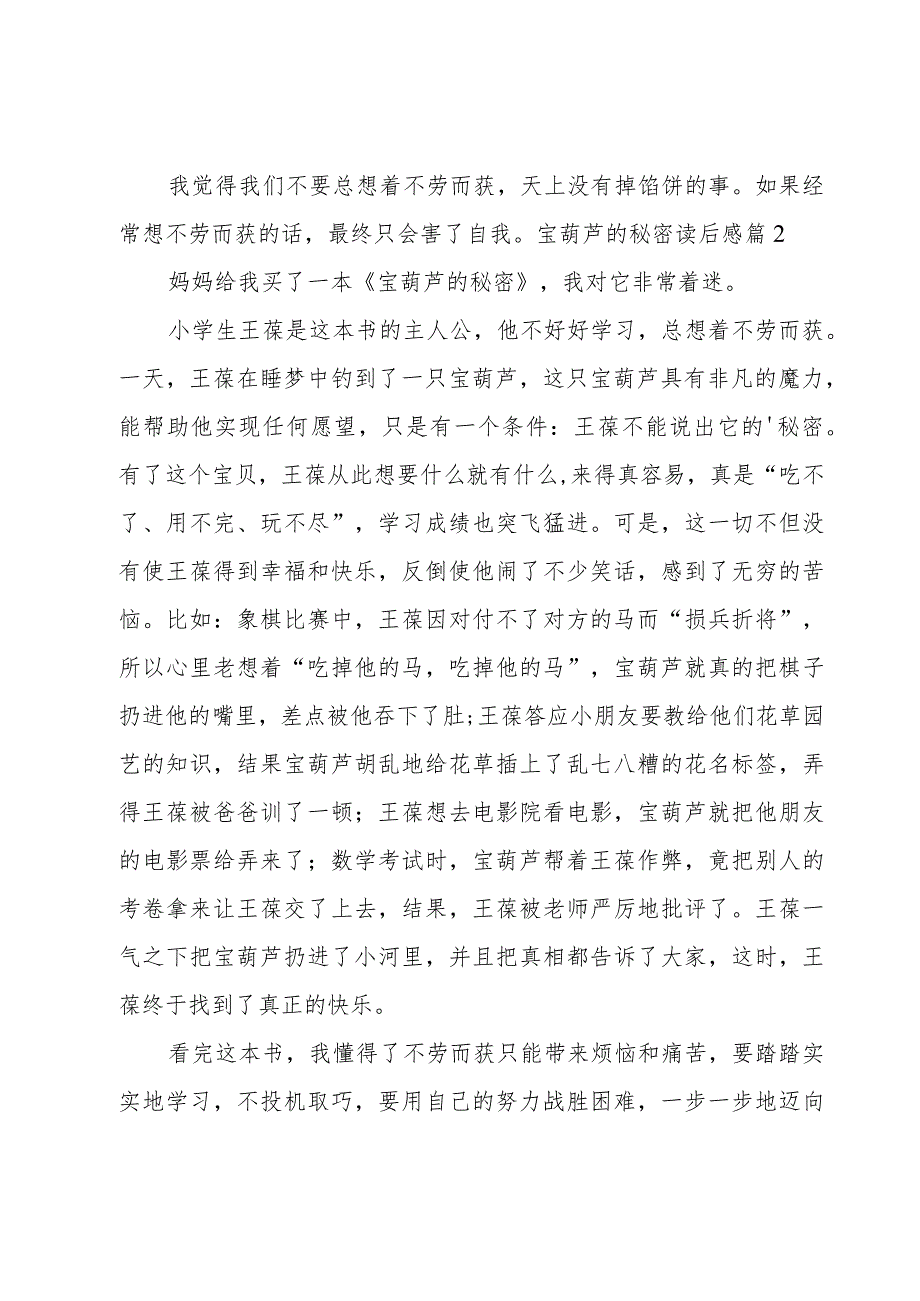 我觉得我们不要总想着不劳而获，天上没有掉馅饼的事。如果经
常想不劳而获的话，最终只会害了自我。宝葫芦的秘密读后感篇2
妈妈给我买了一本《宝葫芦的秘密》，我对它非常着迷。
小学生王葆是这本书的主人公，他不好好学习，总想着不劳而获。
一天，王葆在睡梦中钓到了一只宝葫芦，这只宝葫芦具有非凡的魔力，
能帮助他实现任何愿望，只是有一个条件：王葆不能说出它的'秘密。
有了这个宝贝，王葆从此想要什么就有什么,来得真容易，真是“吃不
了、用不完、玩不尽”，学习成绩也突飞猛进。可是，这一切不但没
有使王葆得到幸福和快乐，反倒使他闹了不少笑话，感到了无穷的苦
恼。比如：象棋比赛中，王葆因对付不了对方的马而“损兵折将”，
所以心里老想着“吃掉他的马，吃掉他的马”，宝葫芦就真的把棋子
扔进他的嘴里，差点被他吞下了肚;王葆答应小朋友要教给他们花草园
艺的知识，结果宝葫芦胡乱地给花草插上了乱七八糟的花名标签，弄
得王葆被爸爸训了一顿；王葆想去电影院看电影，宝葫芦就把他朋友
的电影票给弄来了；数学考试时，宝葫芦帮着王葆作弊，竟把别人的
考卷拿来让王葆交了上去，结果，王葆被老师严厉地批评了。王葆一
气之下把宝葫芦扔进了小河里，并且把真相都告诉了大家，这时，王
葆终于找到了真正的快乐。
看完这本书，我懂得了不劳而获只能带来烦恼和痛苦，要踏踏实
实地学习，不投机取巧，要用自己的努力战胜困难，一步一步地迈向